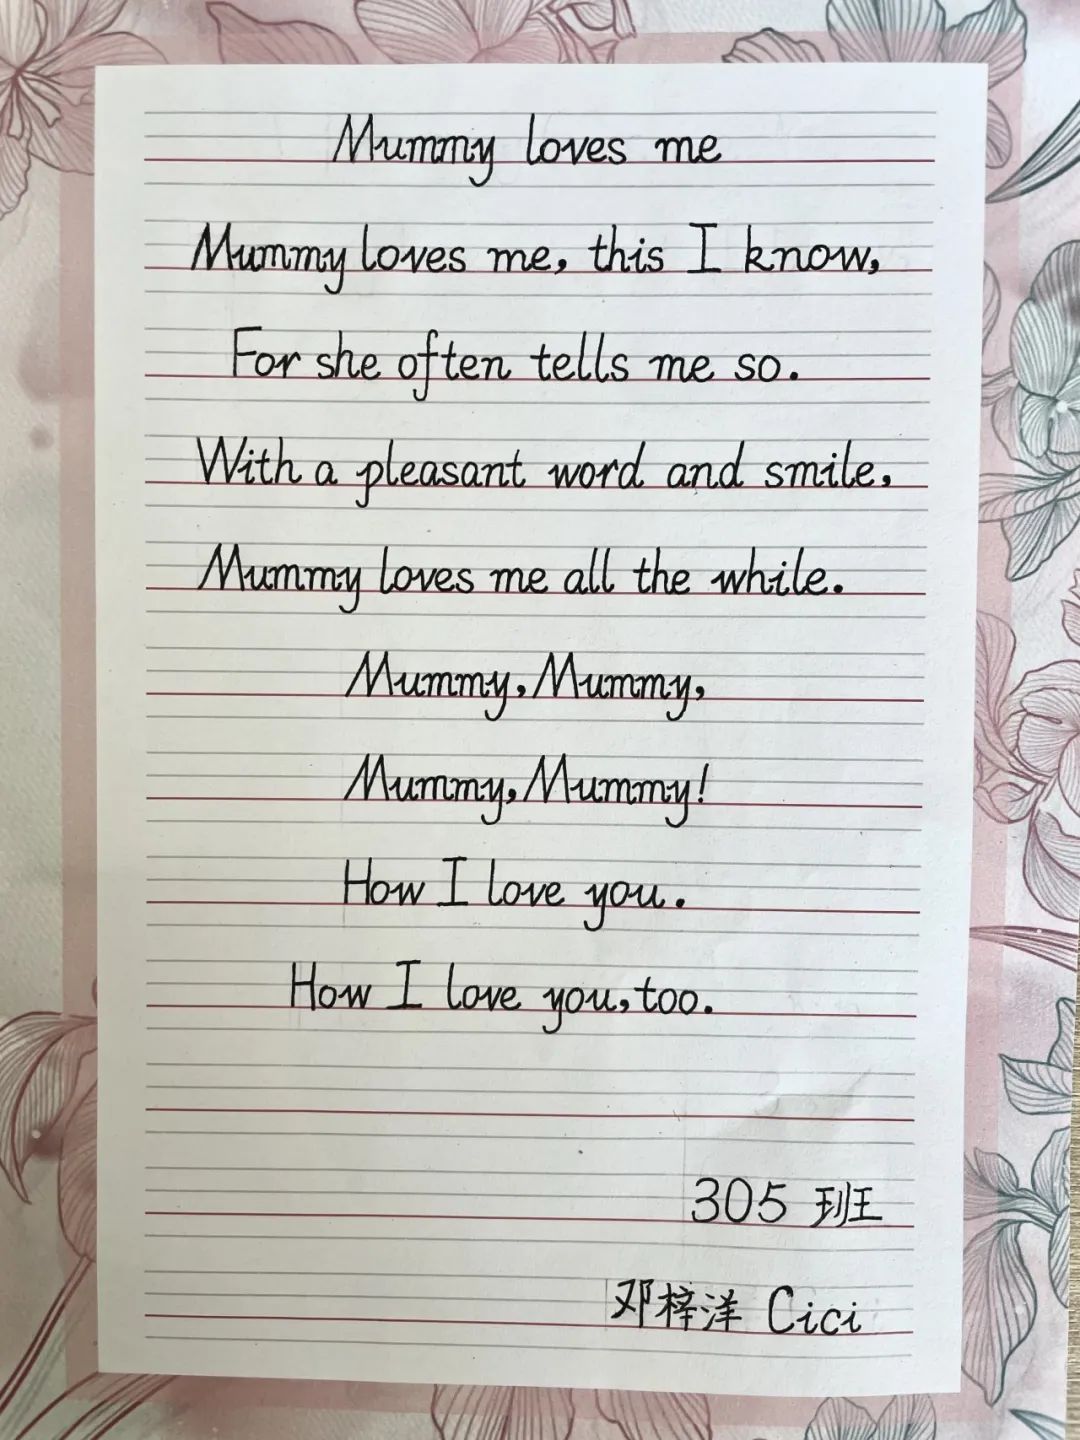 Mummy loves me
Mummy loves me, this I know,
For she often tells me so.
With a pleasant word and smile,
Mummy loves me all the while.
Mummy, Mummy,
Mummy, Mummy!
How I love you.
How I love you, too.
305 班
邓梓洋 Cici